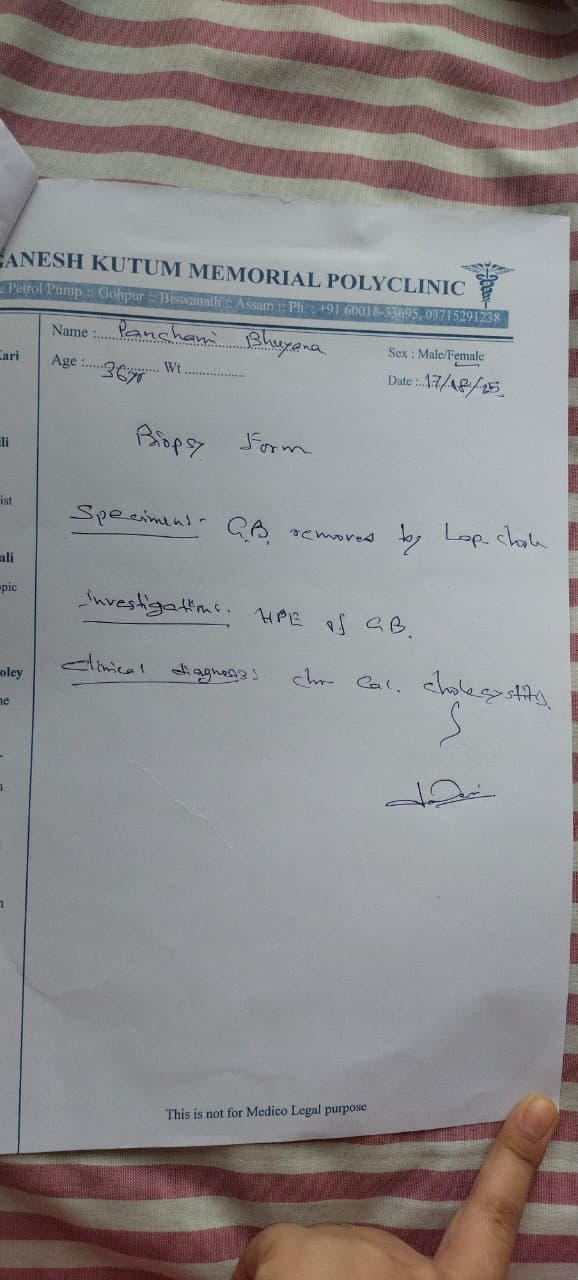 GANESH KUTUM MEMORIAL POLYCLINIC
Petrol Pump :: Gohpur :: Biswanath :: Assam :: Ph. : +91 60018-33695, 03715291238
Name : Panchami Bhuyana
Sex : Male/Female
Age : 36yr Wt
Date : 17/08/25
Biopsy Form
Specimens - G.B. removed by Lap. chole
Investigations. HPE of GB.
Clinical diagnosis. chr cal. cholecystitis.
This is not for Medico Legal purpose